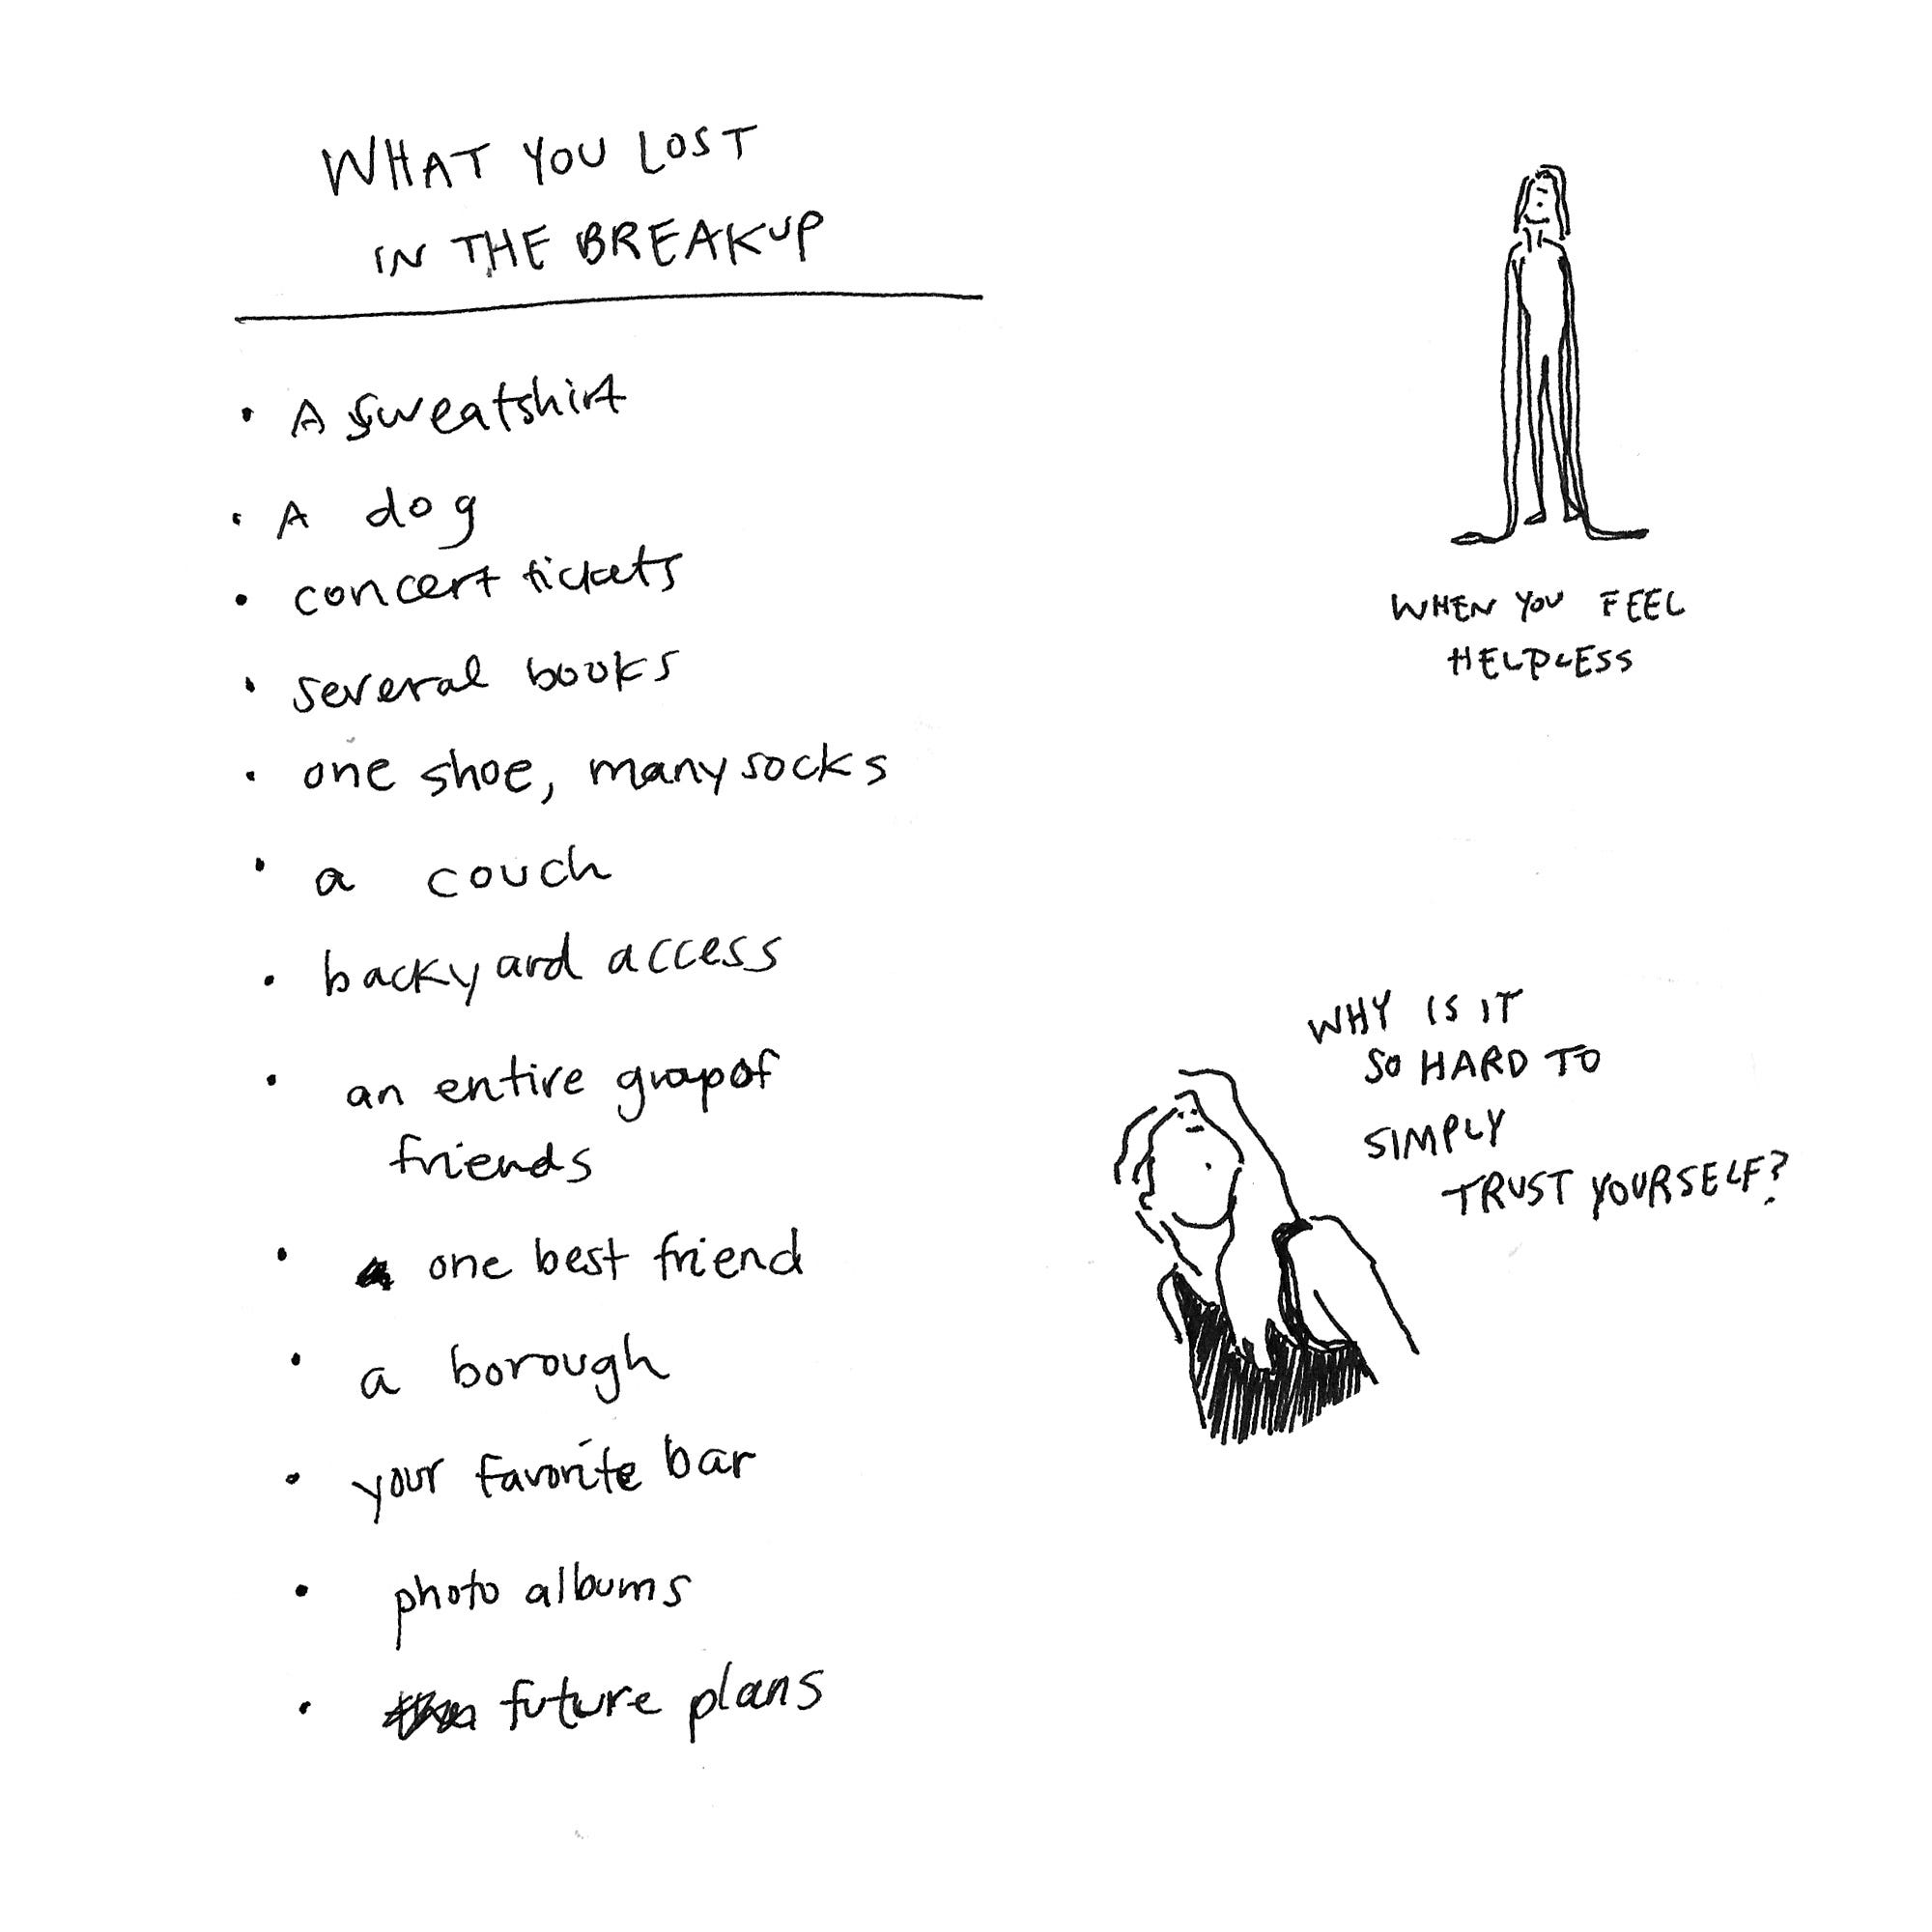 WHAT YOU LOST
IN THE BREAKUP
• A sweatshirt
• A dog
• concert tickets
• several books
• one shoe, many socks
• a couch
• backyard access
• an entire group of
friends
• one best friend
• a borough
• your favorite bar
• photo albums
• future plans
WHEN YOU FEEL
HELPLESS
WHY IS IT
SO HARD TO
SIMPLY
TRUST YOURSELF?